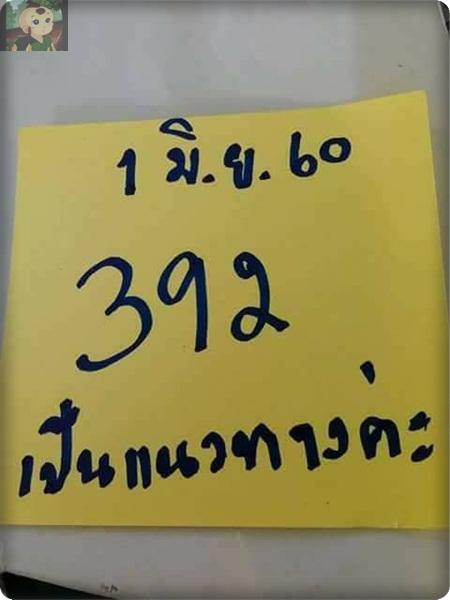 1 มิ.ย. 60
392
เป็นแนวทางค่ะ